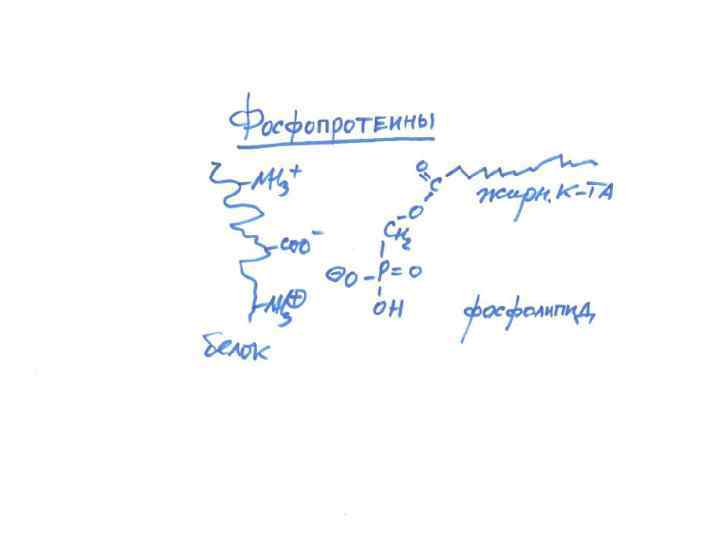 Фосфопротеины
NH₃⁺
COO⁻
NH₃⊕
белок
O
C
O
CH₂
⊖O-P=O
OH
жирн. к-та
фосфолипид